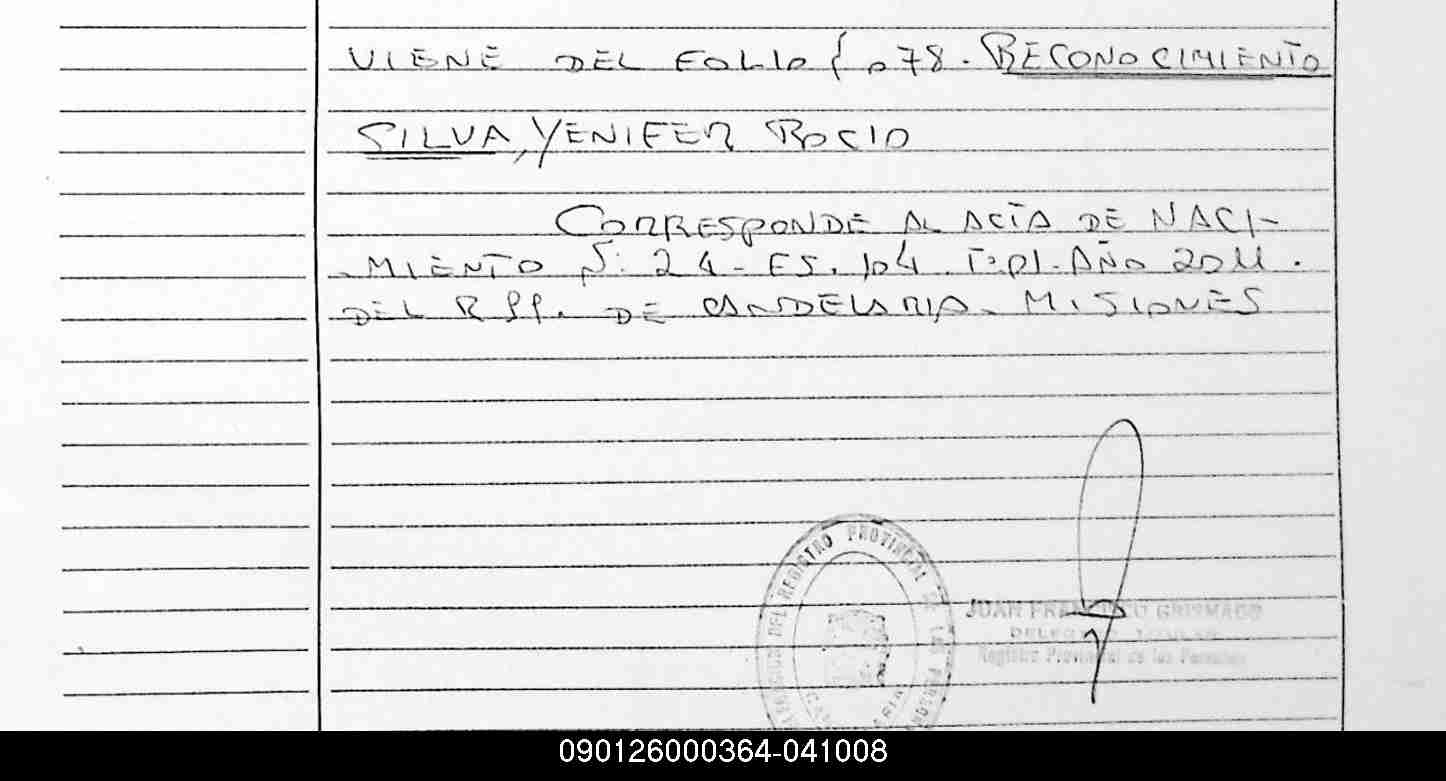 VIENE DEL FOLIO 078. RECONOCIMIENTO
SILVA, YENIFER ROCIO
CORRESPONDE AL ACTA DE NACI-
MIENTO N: 24 - FS. 104 Tº 01. AÑO 2011.
DEL R.P.P. DE CANDELARIA - MISIONES
DELEGACION DEL REGISTRO PROVINCIAL DE LAS PERSONAS
JUAN FRANCISCO
DELEGADO TITULAR
Registro Provincial de las Personas
090126000364-041008